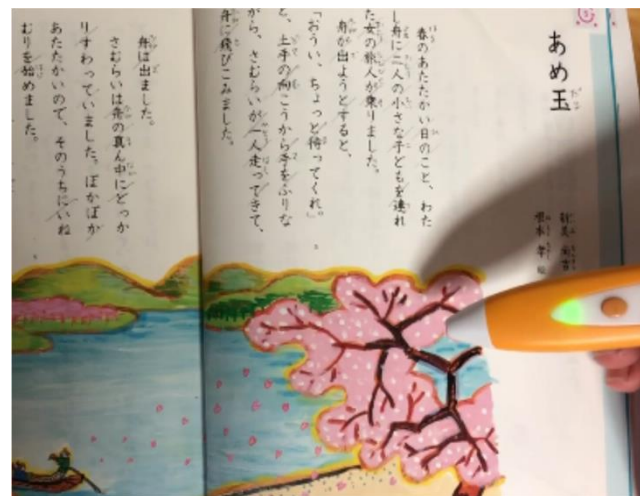 あめ玉
新美 南吉
春のあたたかい日のこと、わた
し舟に二人の小さな子どもを連れ
た女の旅人が乗りました。
舟が出ようとすると、
「おうい、ちょっと待ってくれ。」
と、土手の向こうから手をふりな
がら、さむらいが一人走ってきて、
舟に飛びこみました。
舟は出ました。
さむらいは舟の真ん中にどっか
りすわっていました。ぽかぽか
あたたかいので、そのうちにいね
むりを始めました。